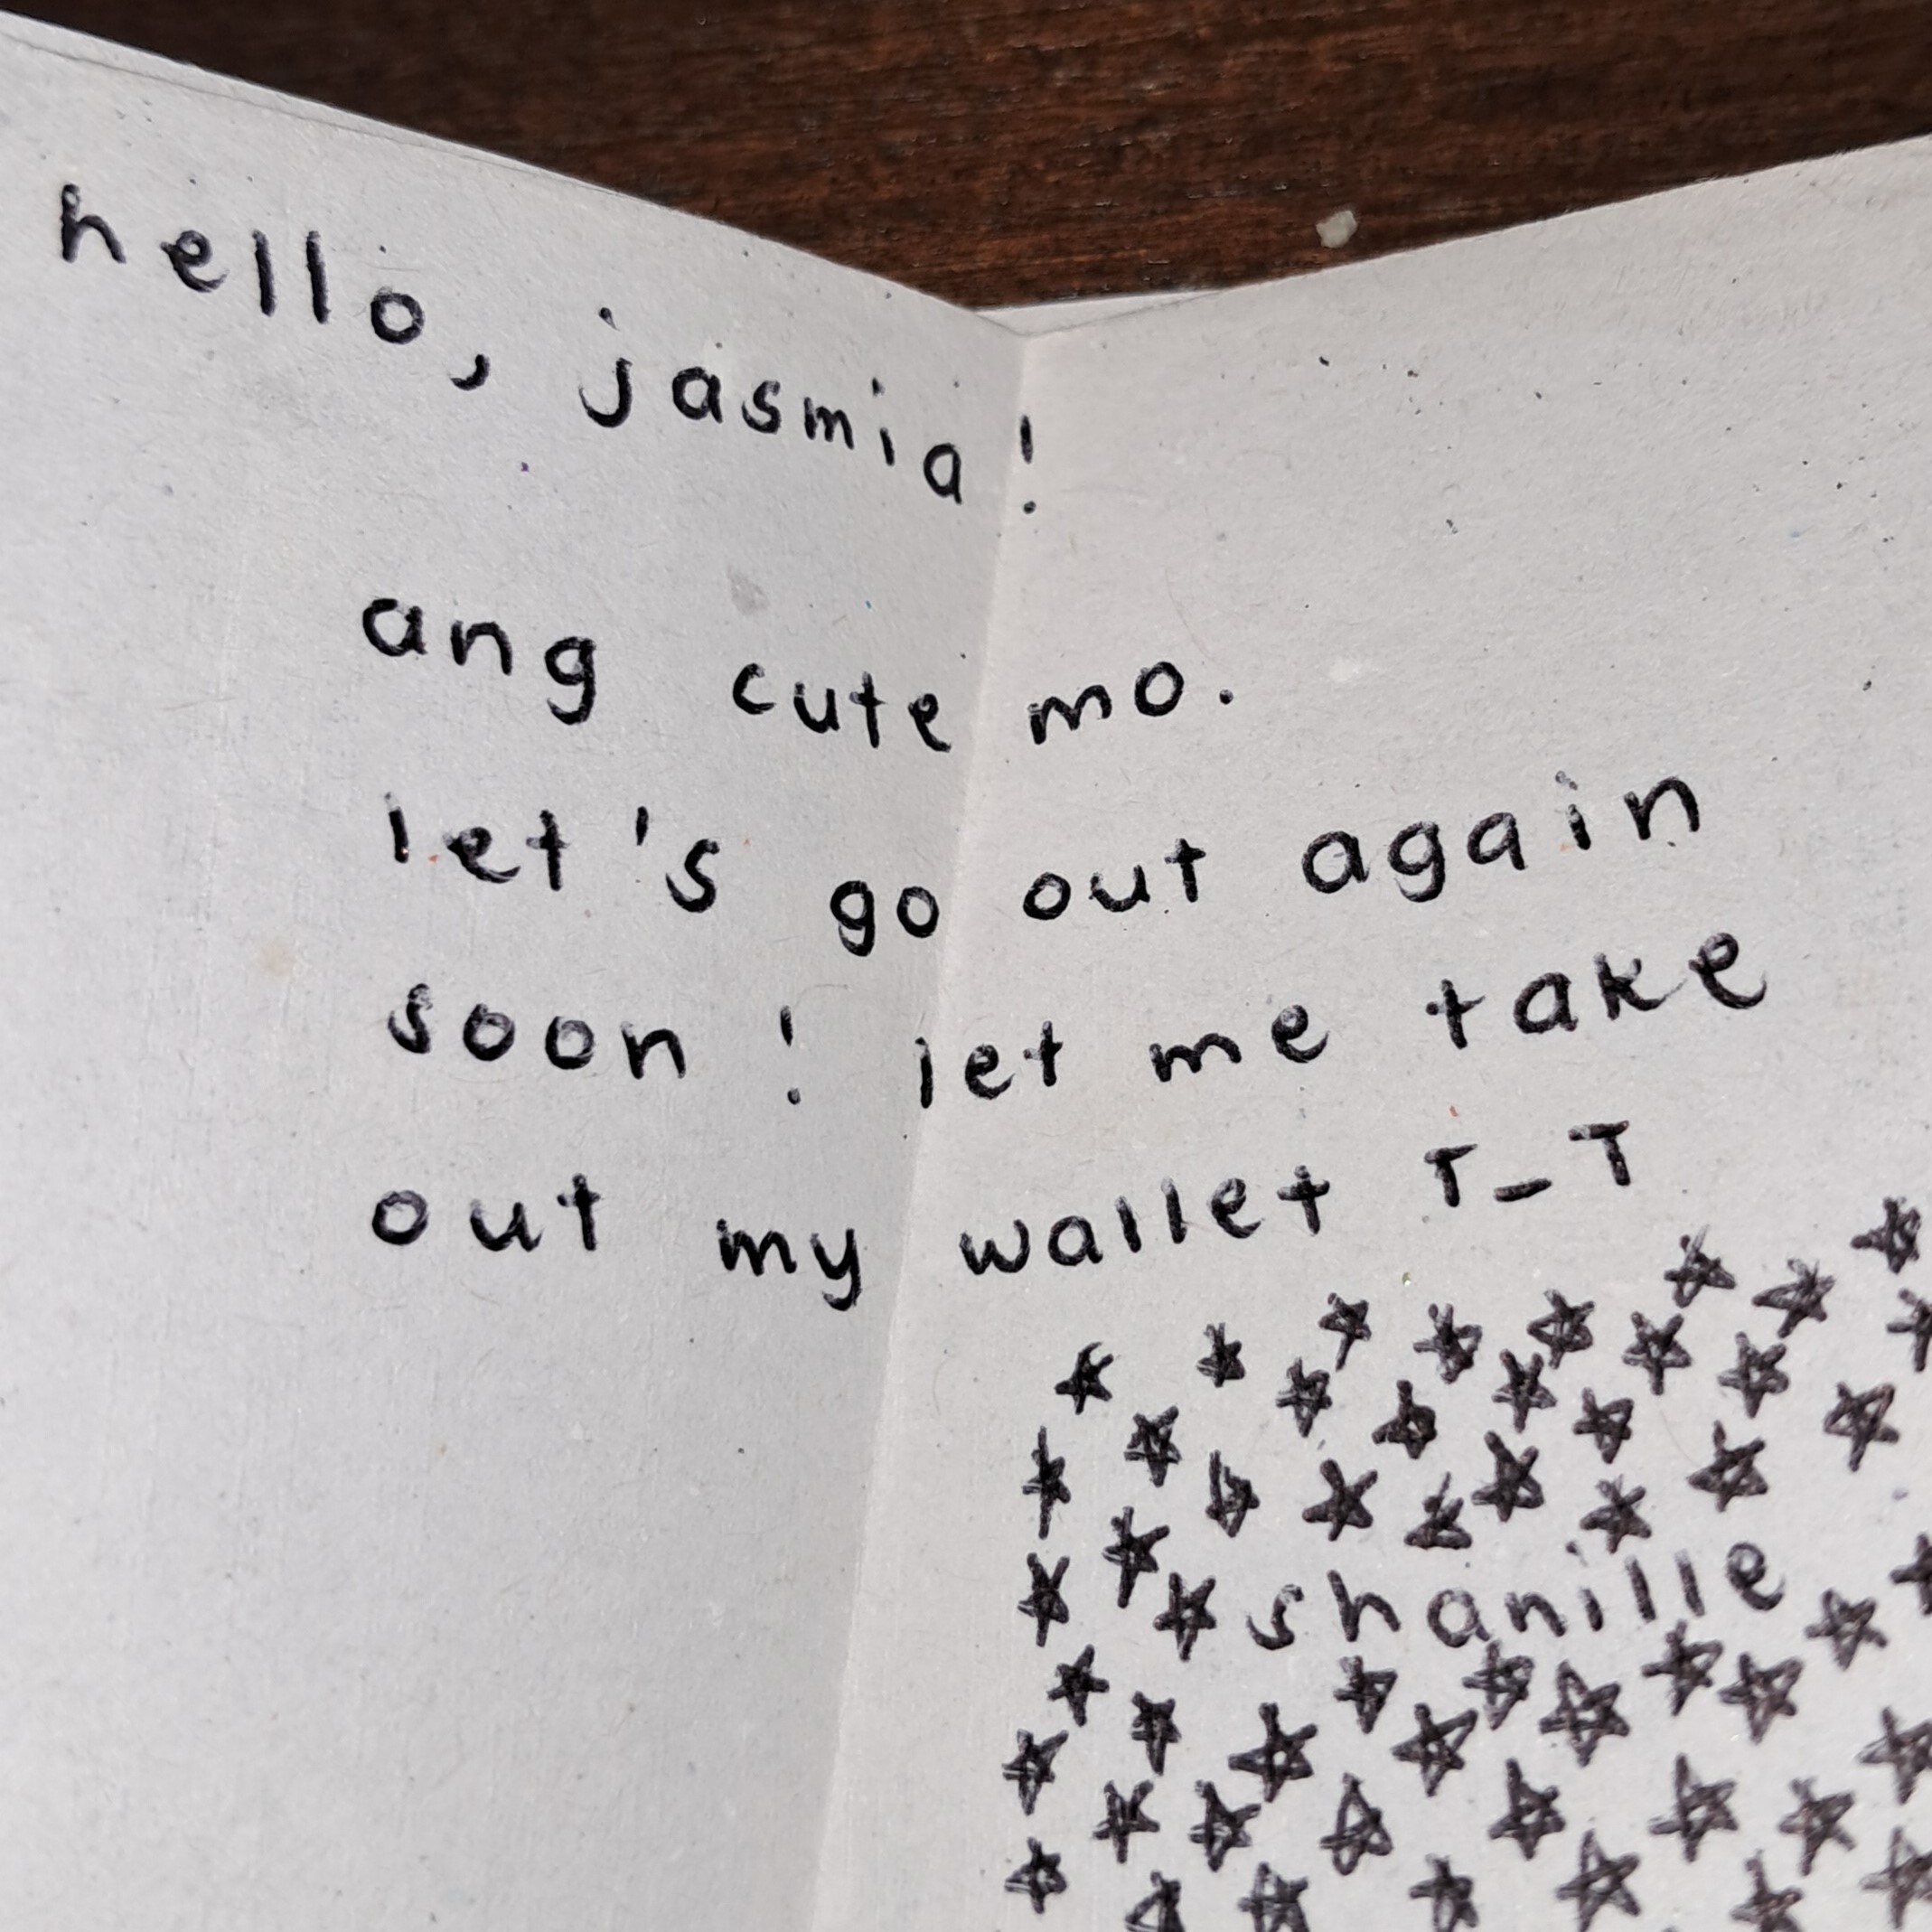 hello, jasmia!
ang cute mo.
let's go out again
soon! let me take
out my wallet T_T
shanille